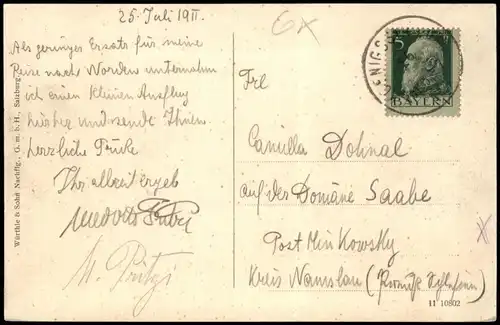 25. Juli 1911.
Als geringer Ersatz für meine
Reise nach Norden unternahm
ich einen kleinen Ausflug
hierher und sende Ihnen
herzliche Grüße
Ihr allzeit ergeb
M. Pritzi
Würthle & Sohn Nachflg., G. m. b. H., Salzburg.
6x
5
BAYERN
Frl
Camilla Dohnal
auf der Domäne Saabe
Post Minkowsky
Kreis Namslau (Preuß Schlesien)
H 10802